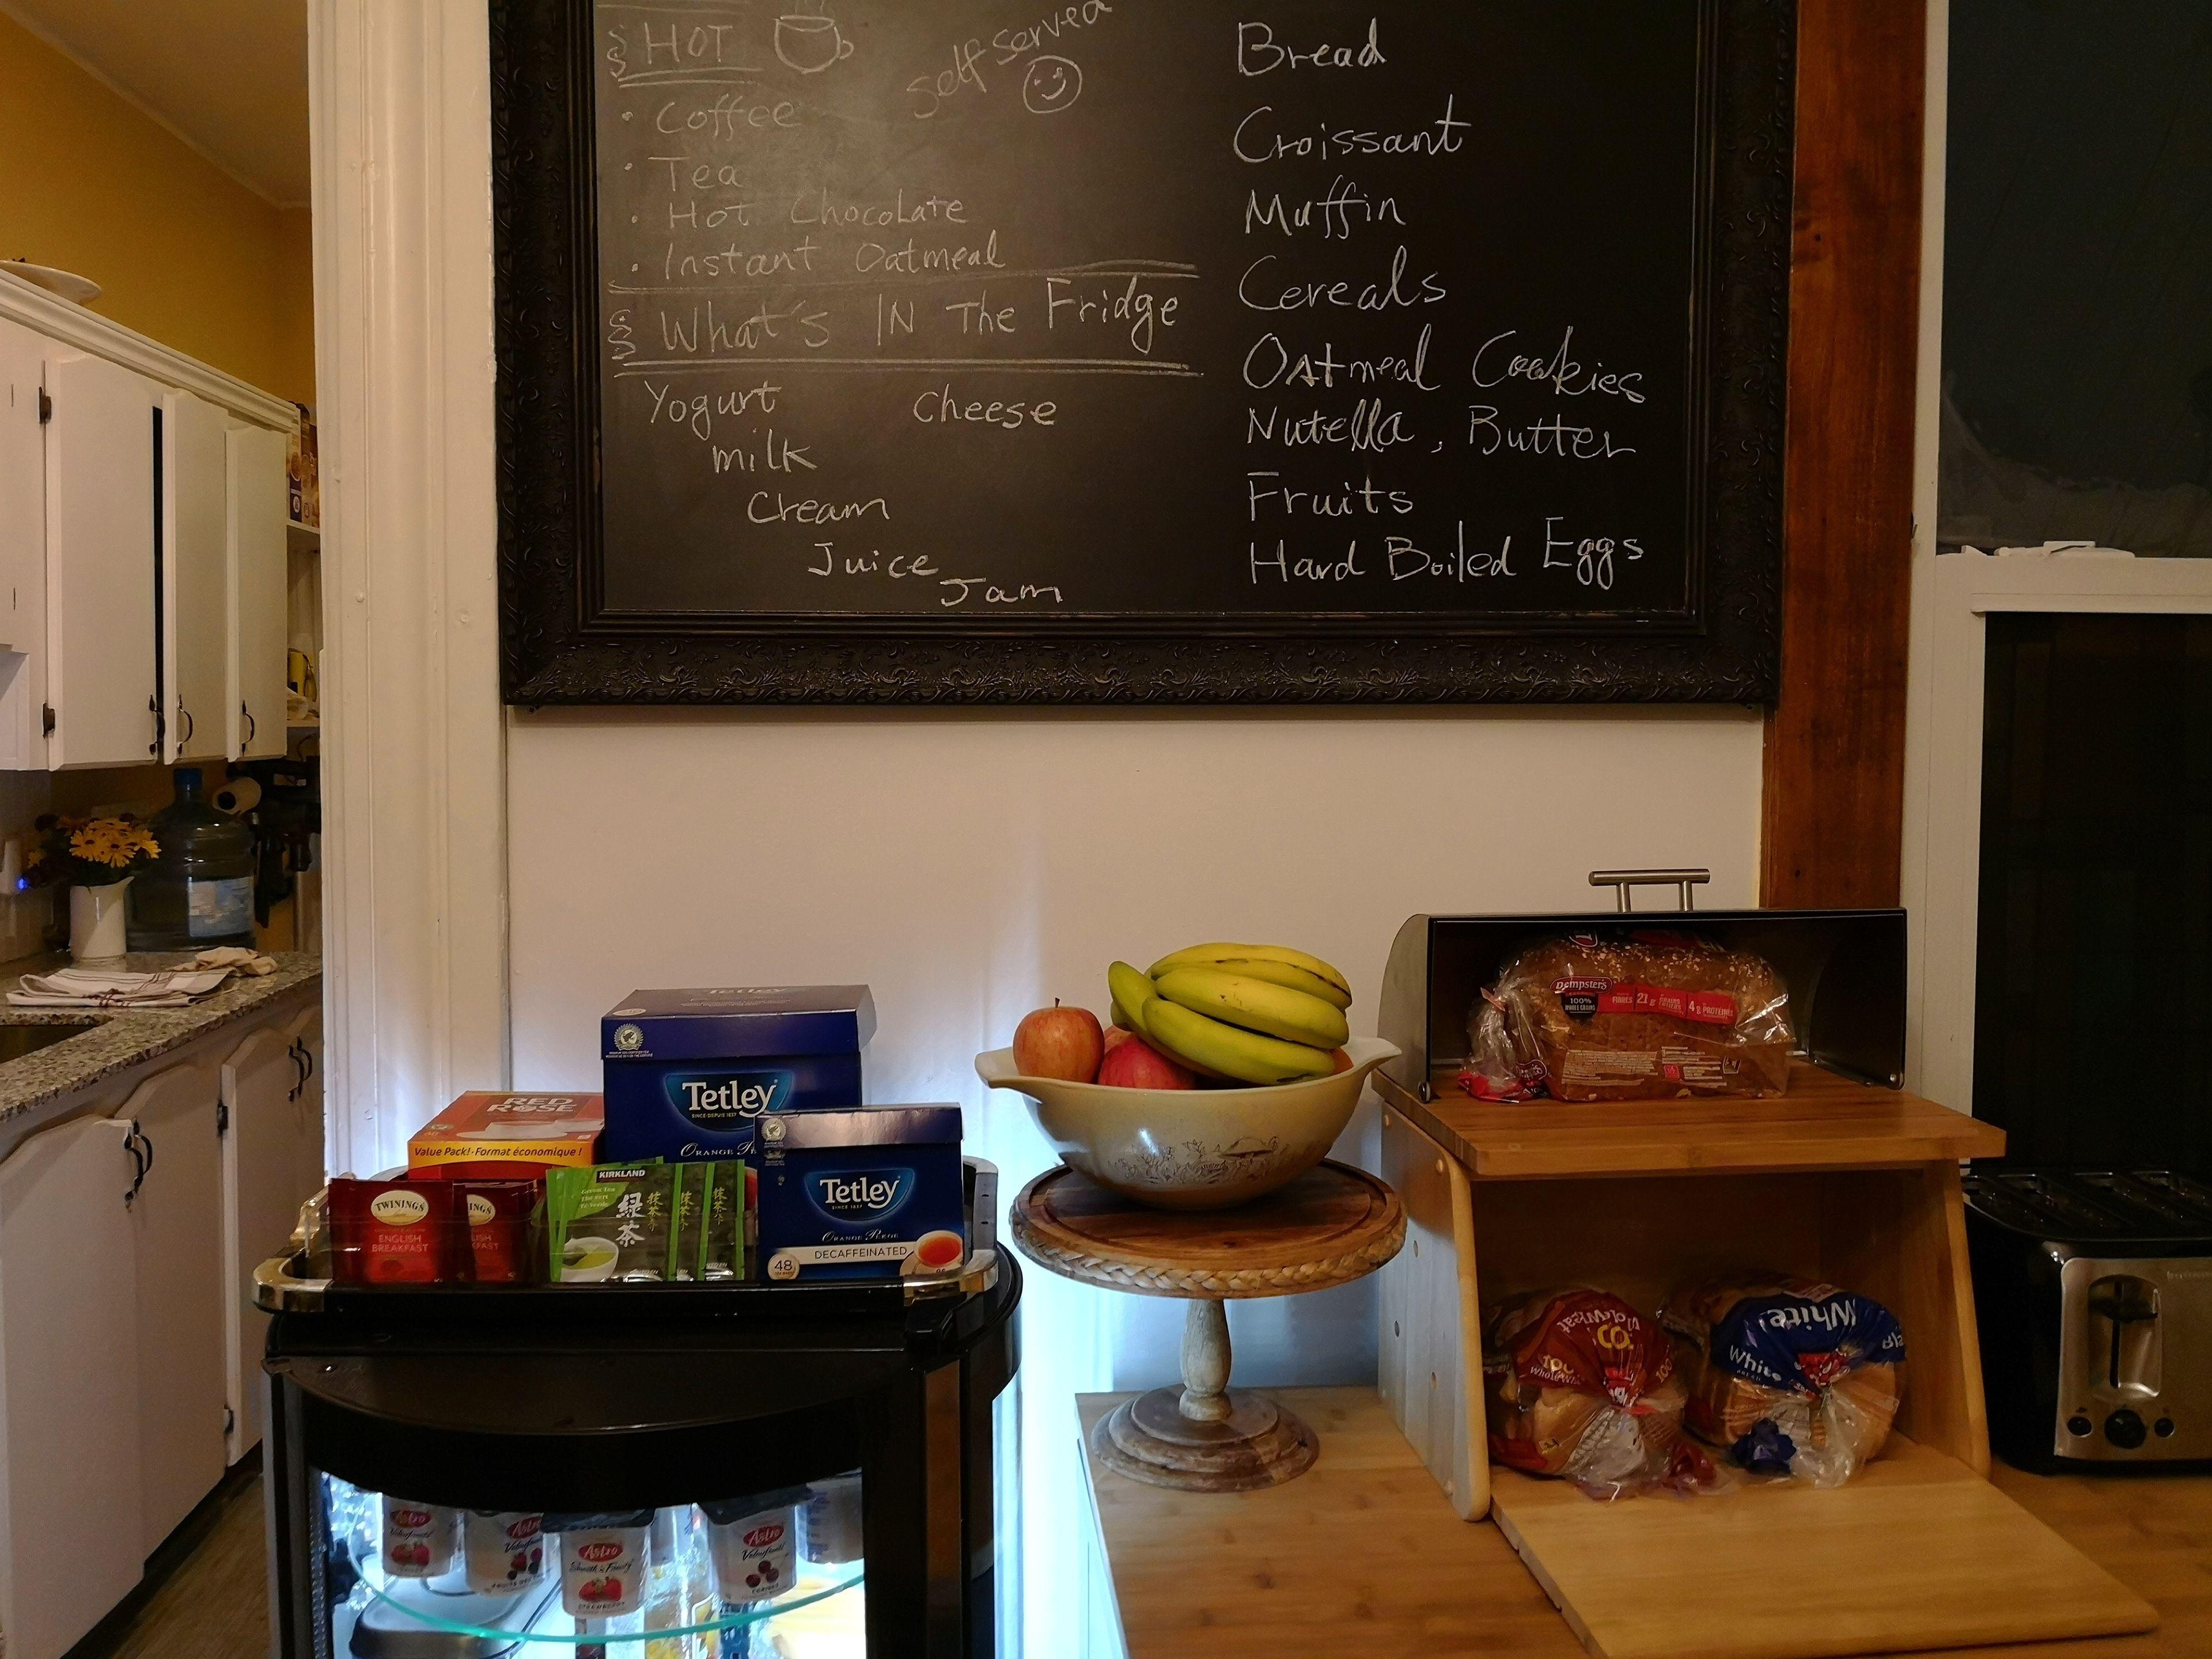 HOT
self served
Coffee
Tea
Hot Chocolate
Instant Oatmeal
What's IN The Fridge
Yogurt Cheese
milk
Cream
Juice
Jam
Bread
Croissant
Muffin
Cereals
Oatmeal Cookies
Nutella, Butter
Fruits
Hard Boiled Eggs
Tetley
Tetley
SINCE DEPUIS 1837
ORANGE P
RED ROSE
Value Pack! · Format économique !
TWININGS
ENGLISH
BREAKFAST
INGS
ISH
FAST
KIRKLAND
緑茶
抹茶
抹茶
抹茶
Tetley
SINCE 1837
ORANGE PEKOE
DECAFFEINATED
48
DEMPSTER'S
100%
WHOLE GRAINS
FIBRES 21g 4g PROTÉINES
Whole Wheat
100
White
White
Astro
Astro
Astro
Smooth n Fruity
Astro